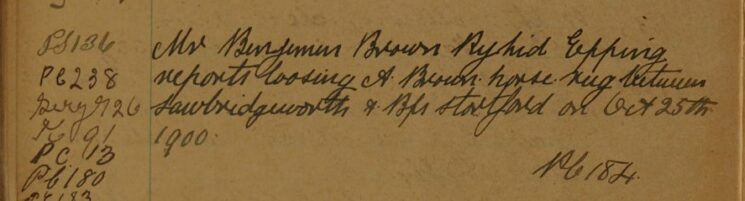 PS 136
PC 238
Serg 926
" 91
PC. 13
PC 180
Mr Benjemen Brown Ryhid Epping
reports loosing A Brown horse rug between
Sawbridgeworth & Bps stortford on Oct 25th
1900.
PC 184.